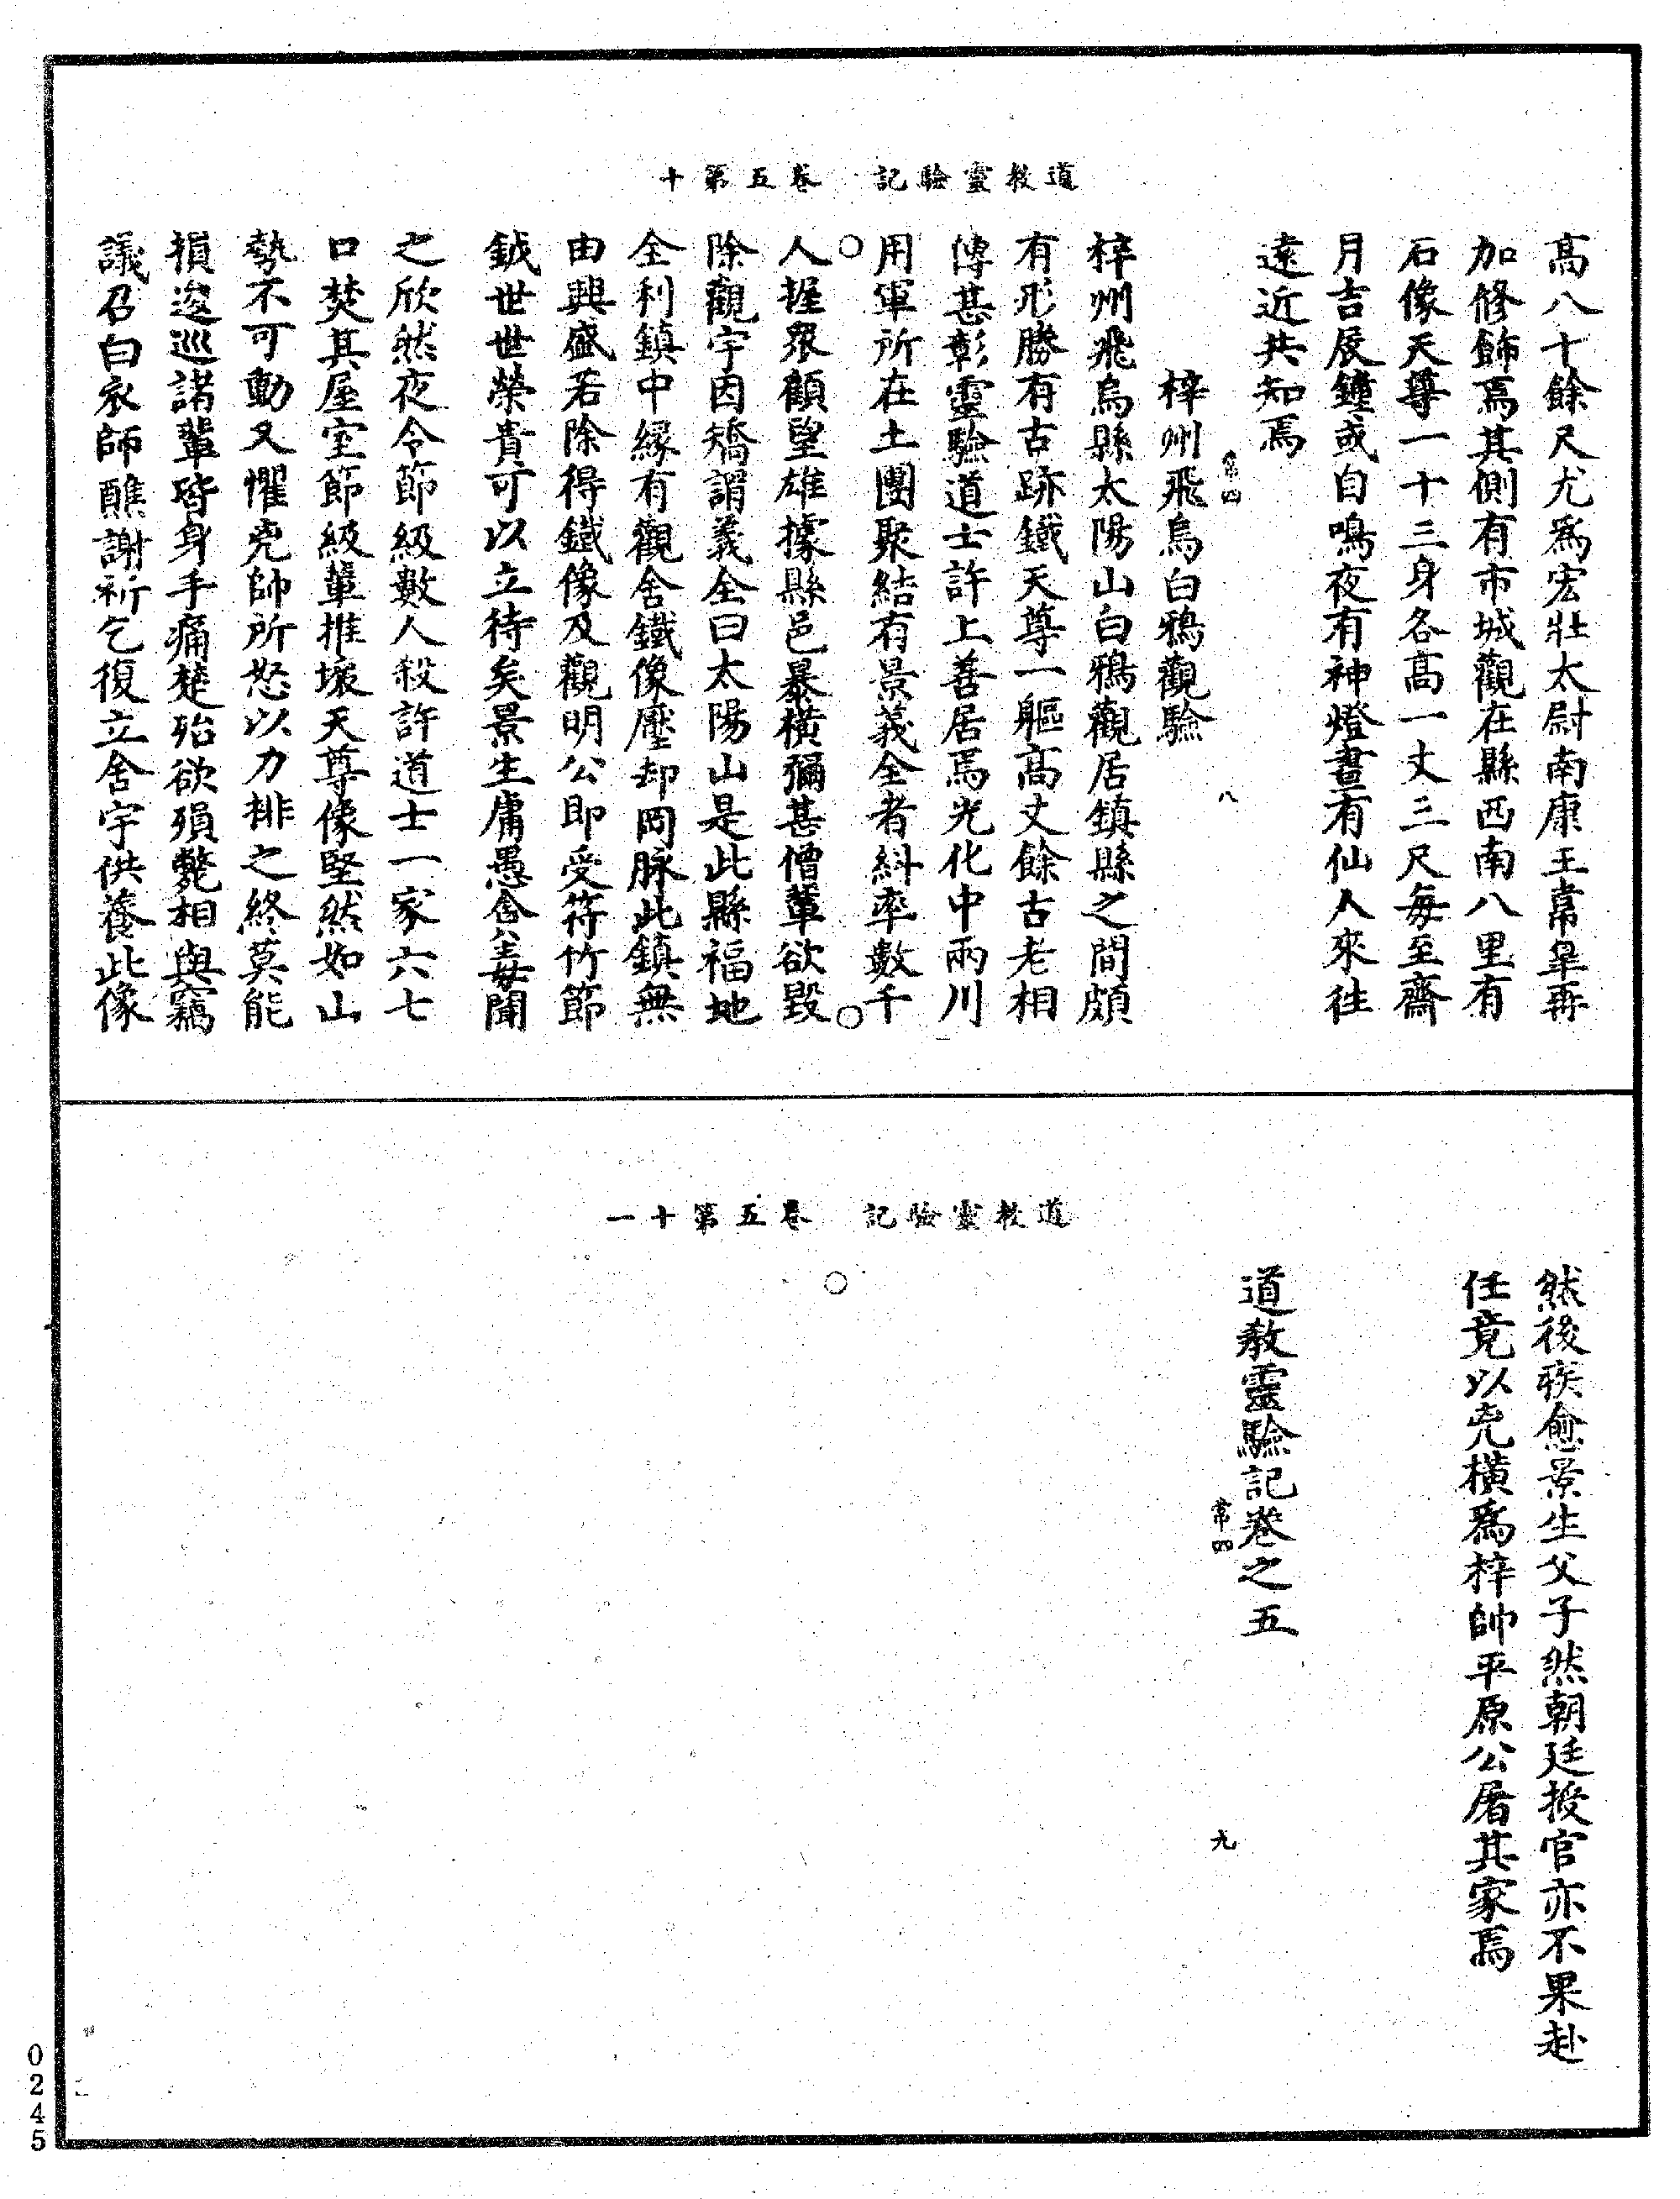 道教靈驗記　卷五第十
高八十餘尺尤爲宏壯太尉南康王韋臯再
加修飾焉其側有市城觀在縣西南八里有
石像天尊一十三身各高一丈三尺每至齋
月吉辰鐘或自鳴夜有神燈晝有仙人來往
遠近共知焉
常四　八
梓州飛烏白鴉觀驗
梓州飛烏縣太陽山白鴉觀居鎮縣之間頗
有形勝有古跡鐵天尊一軀高丈餘古老相
傳甚彰靈驗道士許上善居焉光化中兩川
用軍所在土團聚結有景義全者糾率數千
人握衆顧望雄據縣邑暴橫彌甚僧輩欲毀
除觀宇因矯謂義全曰太陽山是此縣福地
全利鎮中緣有觀舍鐵像壓却岡脉此鎮無
由興盛若除得鐵像及觀明公即受符竹節
鉞世世榮貴可以立待矣景生庸愚含毒聞
之欣然夜令節級數人殺許道士一家六七
口焚其屋室節級輩推壞天尊像堅然如山
勢不可動又懼兇帥所怒以力排之終莫能
損逡巡諸輩皆身手痛楚殆欲殞斃相與竊
議召白衣師醮謝祈乞復立舍宇供養此像
道教靈驗記　卷五第十一
然後疾愈景生父子然朝廷授官亦不果赴
任竟以兇橫爲梓帥平原公屠其家焉
道教靈驗記卷之五
常四　九
0245